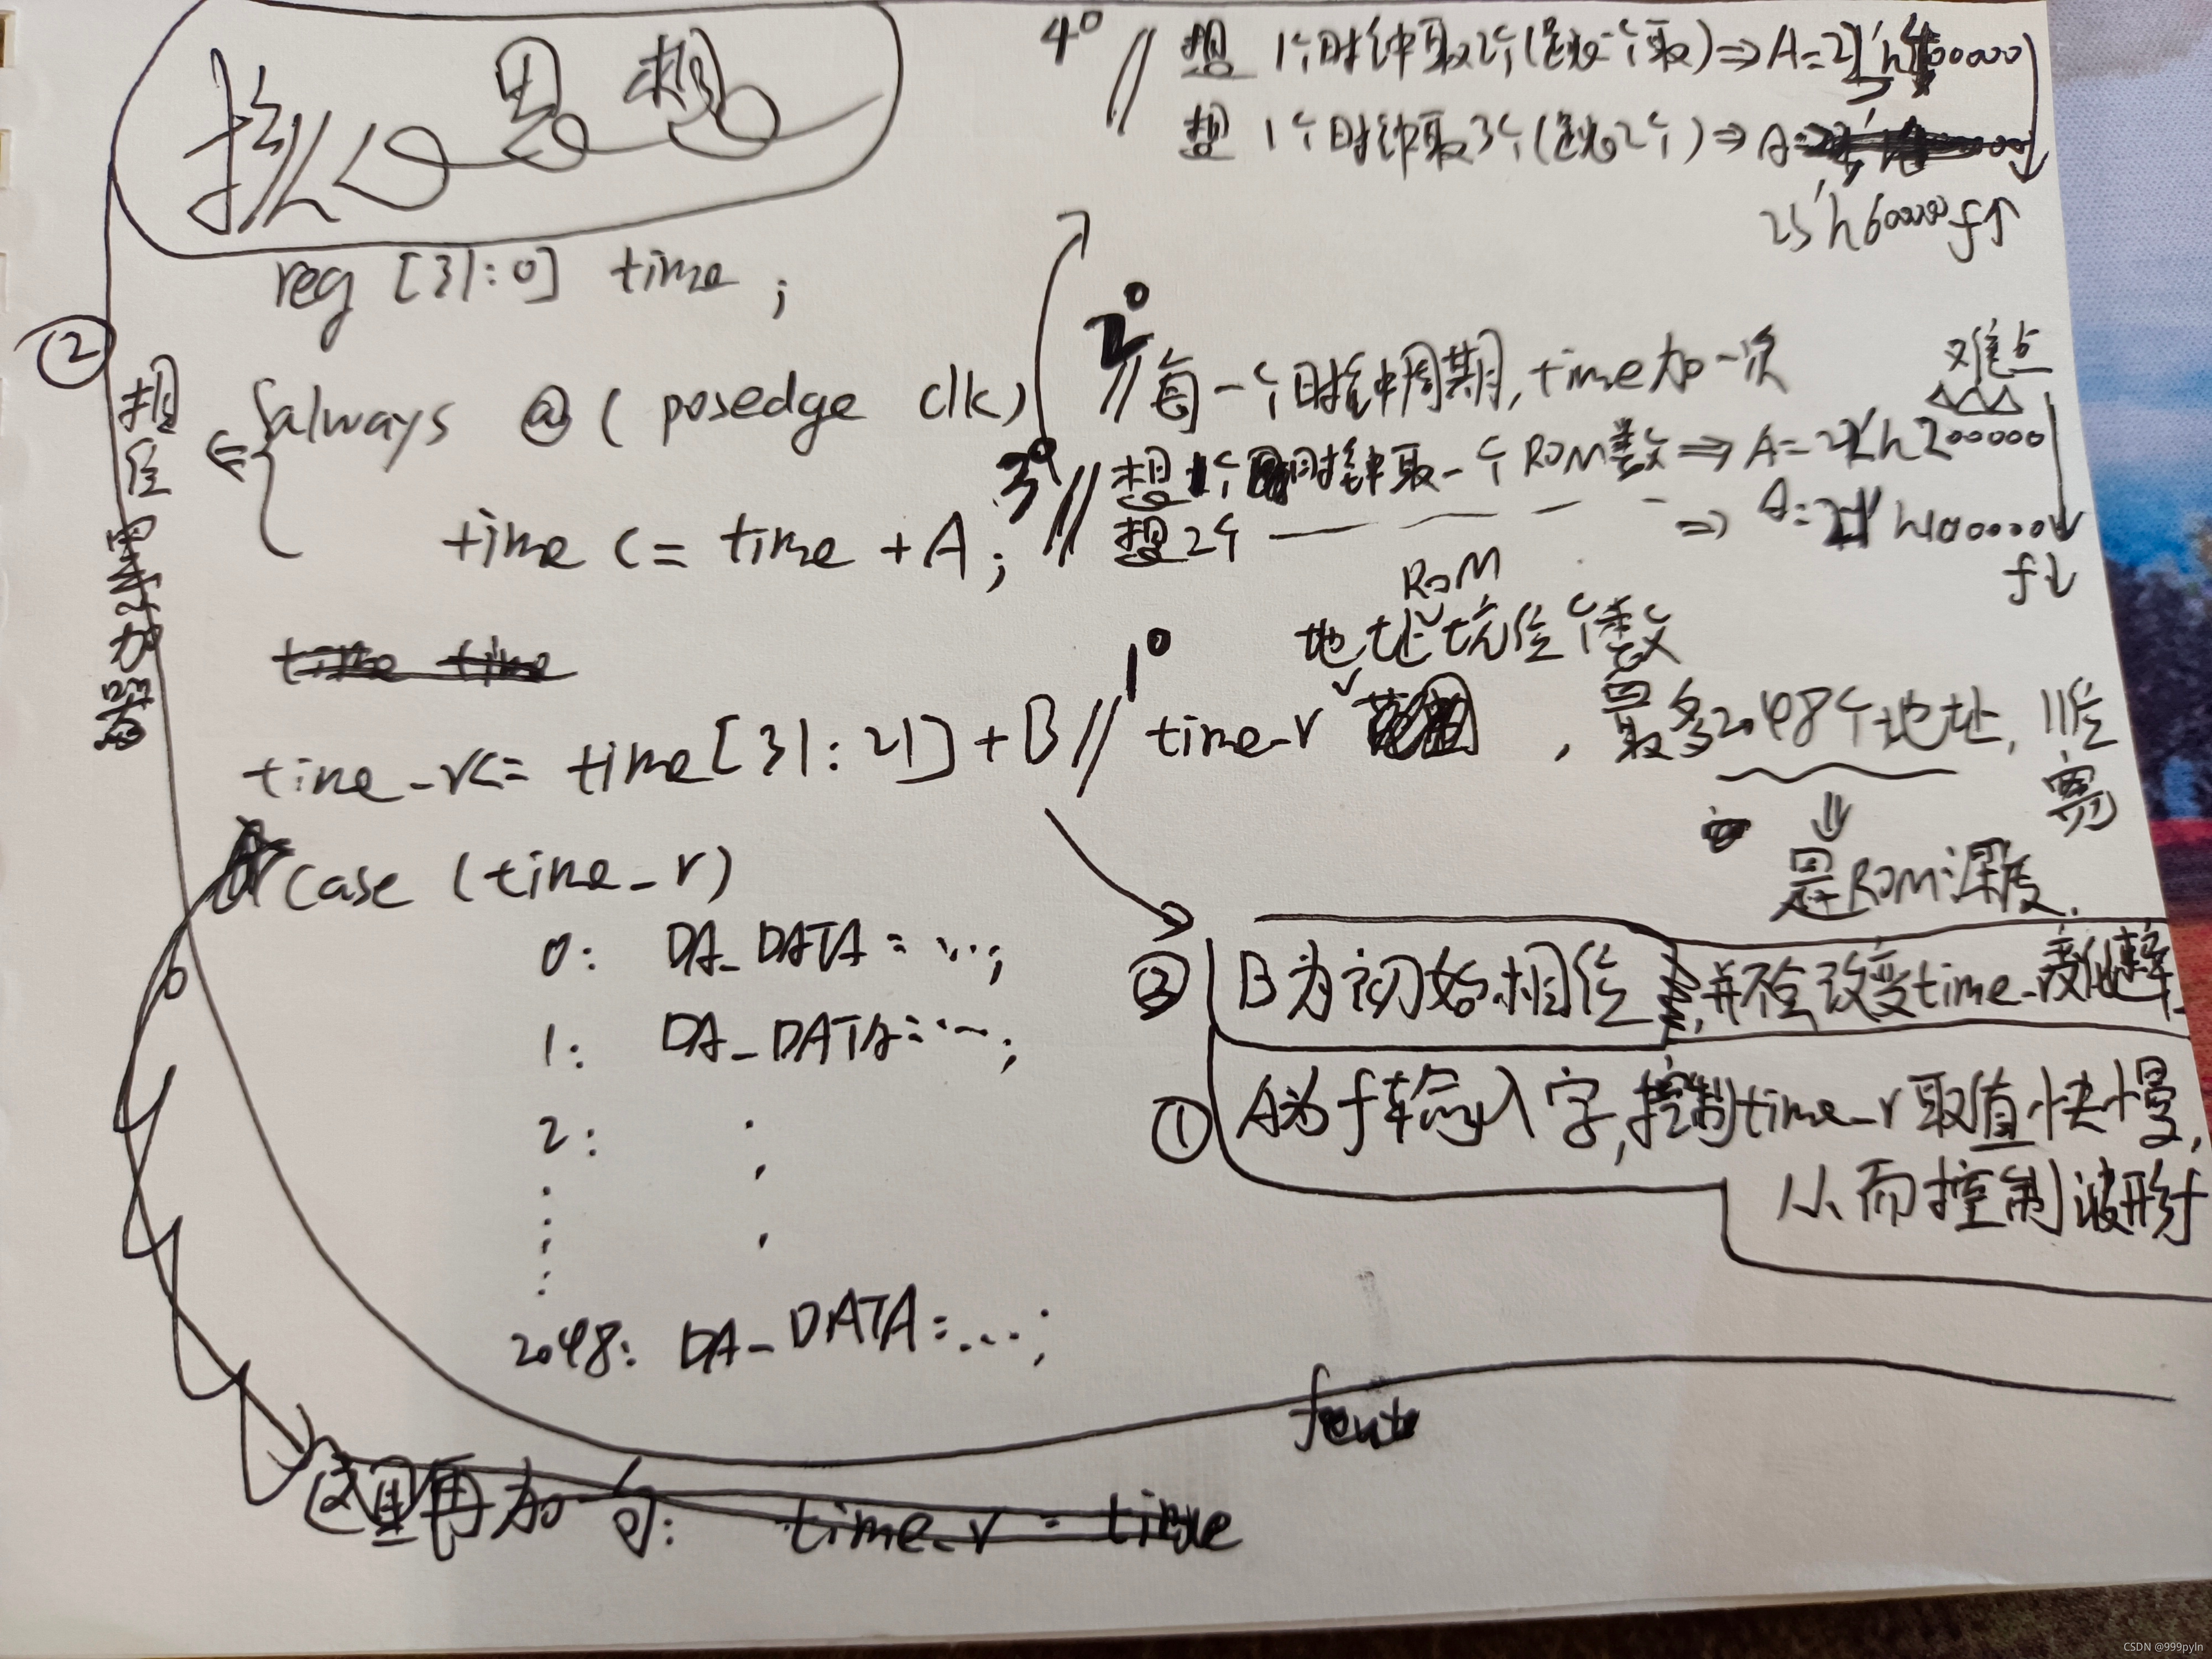 核心思想
4° // 想 1个时钟取2个(跳一个取) ⇒ A=21'h400000
想 1个时钟取3个(跳2个) ⇒ A=
23'h600000 f↑
reg [31:0] time ;
②
相位累加器
always @ ( posedge clk)
2° // 每一个时钟周期, time加一次
难点
3° // 想1个时钟取一个ROM数 ⇒ A=22'h200000
time <= time + A;
// 想2个 ⇒ A=21'h100000
f↓
time time
ROM
地址坑位个数
time_r<= time[31:21]+B // 1° time_r , 最多2048个地址, 11位宽
⇓
是ROM深度.
case (time_r)
0: DA_DATA = ...;
1: DA_DATA=...;
2:
2048: DA_DATA=...;
② B为初始相位, 并不会改变time_r变化速率
① A为f输入字, 控制time_r取值快慢,
从而控制波形f
fout
这里再加一句: time_r = time
CSDN @999pyln